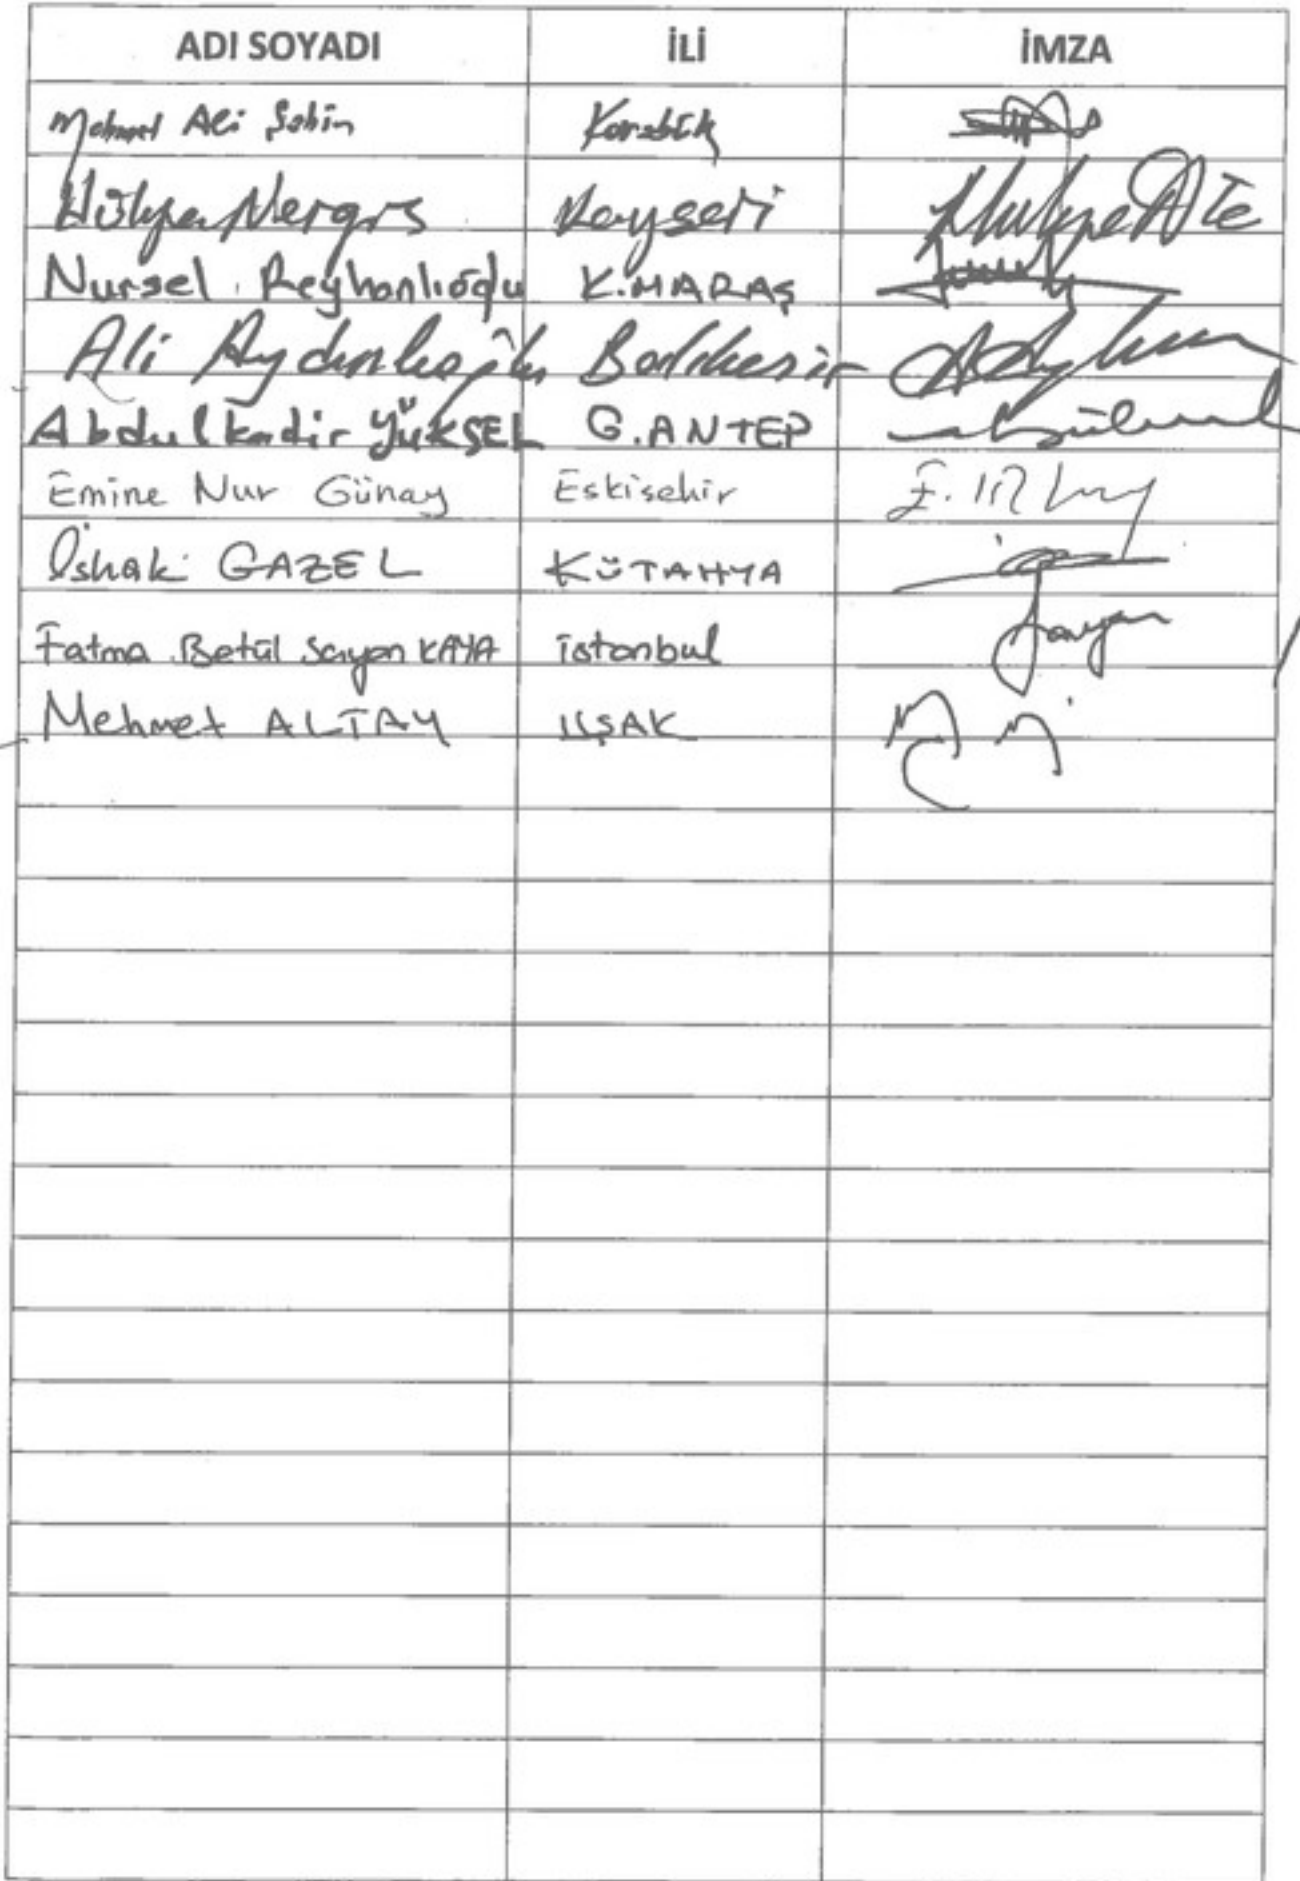 ADI SOYADI İLİ İMZA
Mehmet Ali Şahin Karabük
Hülya Nergis Kayseri
Nursel Reyhanlıoğlu K.MARAŞ
Ali Aydınlıoğlu Balıkesir
Abdulkadir YÜKSEL G.ANTEP
Emine Nur Günay Eskisehir
İshak GAZEL KÜTAHYA
Fatma Betül Sayan KAYA istanbul
Mehmet ALTAY UŞAK